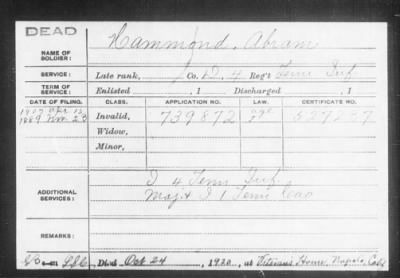 DEAD
NAME OF SOLDIER: Hammond, Abram
SERVICE: Late rank, Co. D, 4 Reg't Tenn Inf
TERM OF SERVICE: Enlisted , 1 Discharged , 1
DATE OF FILING. CLASS. APPLICATION NO. LAW. CERTIFICATE NO.
1889 Nov 23 Invalid, 739872 527237
Widow,
Minor,
ADDITIONAL SERVICES: D 4 Tenn Inf.
1 Tenn Cav
REMARKS:
Died Oct 24, 1920, at Veterans Home, Napa, Cal